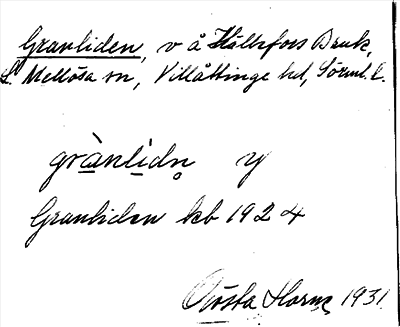 Granliden, v å Hällefors Bruk,
L. Mellösa sn, Villåttinge hd, Sörml. l.
grànlidn̥ y
Granliden kb 1924
Gösta Horne 1931.